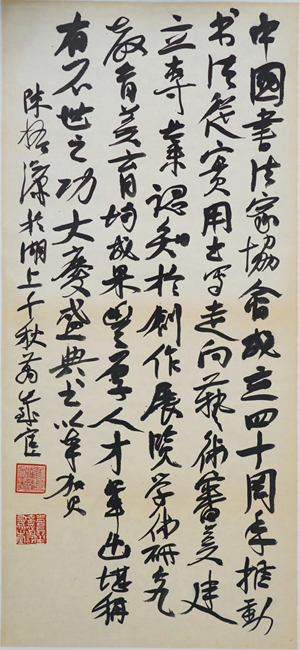 中國書法家協會成立四十周年推動
书法從實用书写走向藝術審美建
立專業認知於創作展覽学术研究
教育美育均成果豐厚人才輩出堪稱
有不世之功大慶盛典书以奉贺
陈振濂於湖上千秋萬歲宦